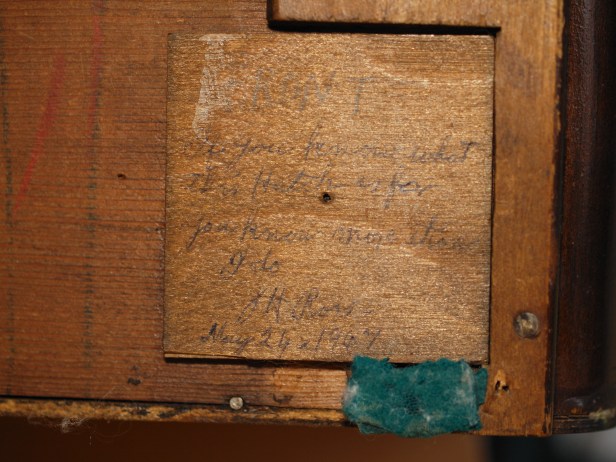 FRONT
If you know what
this patch is for
you know more than
I do
A H Ross
May 26, 1947